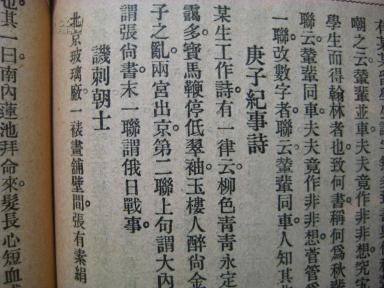 嘲之云輦輩並車。夫夫竟作非非想。究
學生而得翰林者也。致何書稱何爲秋輦
聯云輦輩同車。夫夫竟作非非想。菅管爲
一聯改數字者。聯云輦輩同車。人知其非
庚子紀事詩
某生工作詩。有一律云。柳色青青永定
靄多寶馬鞭停低翠袖。玉樓人醉尚金
子之亂。兩宮出京。第二聯上句謂大內
謂張尚書。末一聯謂俄日戰事。
譏刺朝士
北京玻璃廠一裱畫舖壁間。張有素絹
也。其一曰。南內蓮池拜命來。髮長心短血